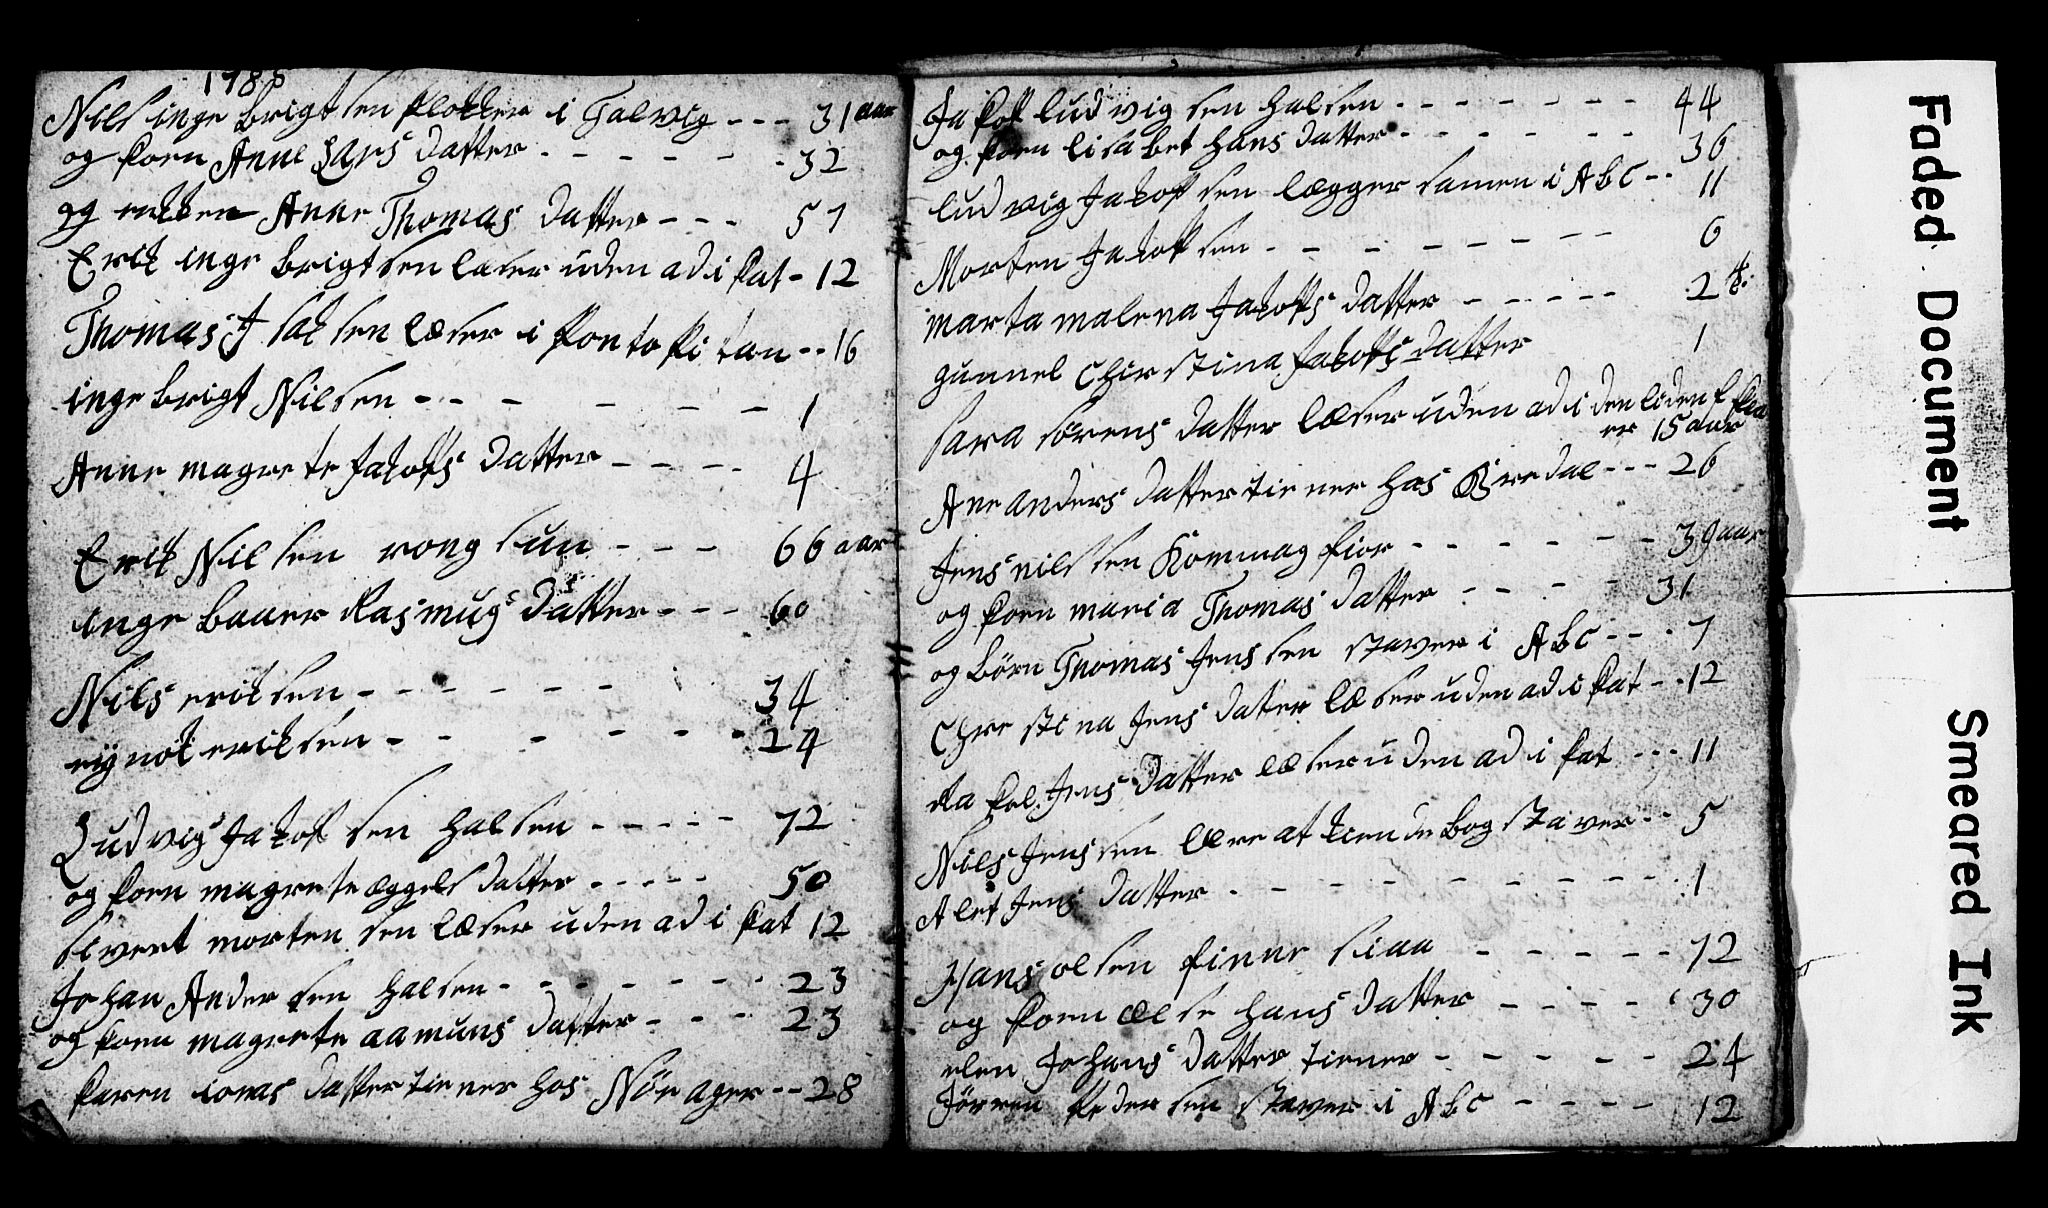 1785
Nils inge brigt sen klokker i Talvig - - - 31 aar
og koen Anne Lars datter - - - - - - 32
og enken Anne Thomas datter - - - 57
Erik inge brigt sen læser uden ad i kat - 12
Thomas Isaksen læser i Pontoppitan - - 16
inge brigt Nilsen - - - - - - 1
Anne magrete Jakobs datter - - - - 4
Erik Nilsen rong sun - - - 66 aar
inge baaer Rasmus datter - - - 60
Nils eriksen - - - - - - 34
eynok eriksen - - - - - - 24
Ludvig Jakob sen halsen - - - - - 72
og koen magrete æggels datter - - - - - 50
sivert morten sen læser uden ad i kat 12
Johan Andersen halsen - - - - - - - 23
og koen magrete aamuns datter - - - 23
karen ionas datter tiener hos Nörager - - 28
Jakob ludvig sen halsen - - - - - - - 44
og koen lisabet hans datter - - - - - - 36
ludvig Jakob sen lægger samen i Abc - - 11
Morten Jakob sen - - - - - - - - 6
marta malena Jakobs datter - - - - - 2
gunnel Chirstina Jakobs datter 1
sara sörens datter læser uden ad i den liden
er 15 aar
Ane anders datter tiener hos - - - 26
Jens nils sen Kommag fior - - - - - - 39 aar
og koen maria Thomas datter - - - - 31
og börn Thomas Jens sen staver i Abc - - - 7
Chrestina Jens datter læser uden ad i kat - - 12
Rakel Jens datter læser uden ad i kat - - - 11
Nils Jens sen lære at kiende bog staver - - 5
Alet Jens datter - - - - - - - - - 1
Hans olsen finne siaa - - - - - 72
og koen ælse hans datter - - - - 30
elen Johans datter tiener - - - - - 24
Jörren Peder sen staver i Abc - - - - 12
Faded Document
Smeared Ink